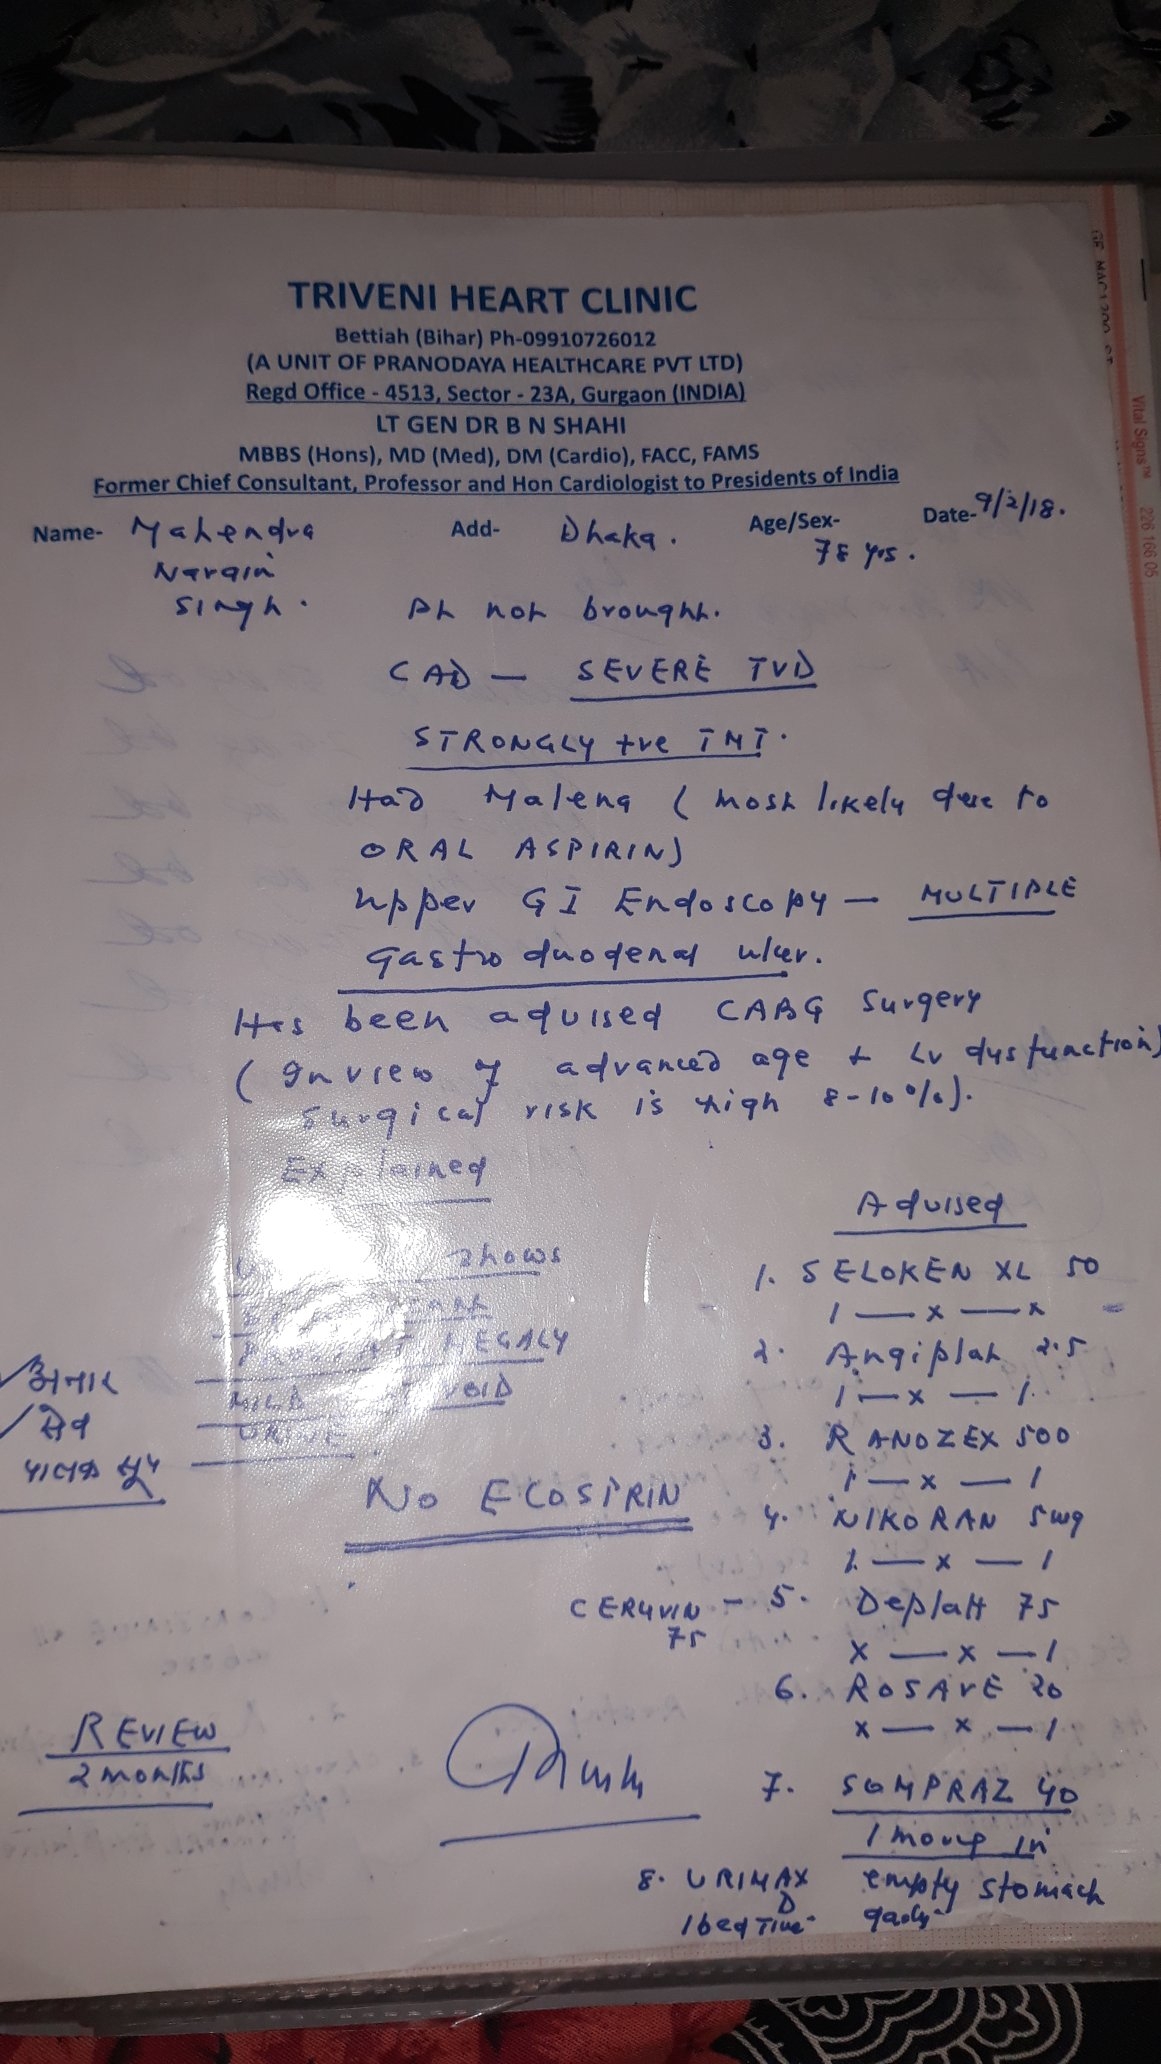 TRIVENI HEART CLINIC
Bettiah (Bihar) Ph-09910726012
(A UNIT OF PRANODAYA HEALTHCARE PVT LTD)
Regd Office - 4513, Sector - 23A, Gurgaon (INDIA)
LT GEN DR B N SHAHI
MBBS (Hons), MD (Med), DM (Cardio), FACC, FAMS
Former Chief Consultant, Professor and Hon Cardiologist to Presidents of India
Name- Mahendra Add- Dhaka. Age/Sex- 78 yrs. Date- 9/2/18.
Narain
Singh.
Pt not brought.
CAD — SEVERE TVD
STRONGLY +ve TMT.
Had Malena (most likely due to
ORAL ASPIRIN)
Upper GI Endoscopy — MULTIPLE
Gastro duodenal ulcer.
Has been advised CABG Surgery
(In view of advanced age + LV dysfunction)
Surgical risk is high 8-10%).
Explained
shows
MEGALY
MILD VOID
URINE
अनार
सेव
पालक सूप
NO ECOSPRIN
REVIEW
2 months
Advised
1. SELOKEN XL 50
1 — x — x
2. Angiplat 2.5
1 — x — 1
3. RANOZEX 500
1 — x — 1
4. NIKORAN 5mg
1 — x — 1
CERUVIN 75 — 5. Deplatt 75
x — x — 1
6. ROSAVE 20
x — x — 1
7. SOMPRAZ 40
1 morng in
empty stomach
daily
8. URIMAX
D
1 bed Time
Vital Signs™ 226 166 05